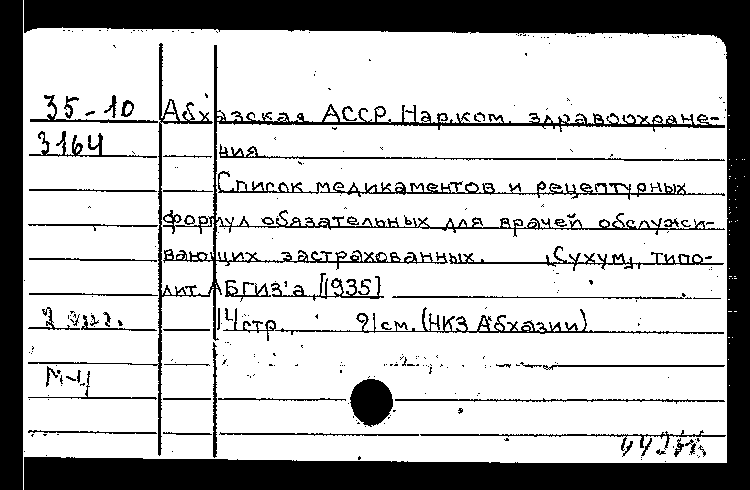 35-10 Абхазская АССР. Нар.ком. здравоохране-
3164 ния
Список медикаментов и рецептурных
формул обязательных для врачей обслужи-
вающих застрахованных. [Сухум], типо-
лит. АБГИЗ'а, [1935]
2 экз. 14 стр. 21 см. (НКЗ Абхазии)
М-Ц